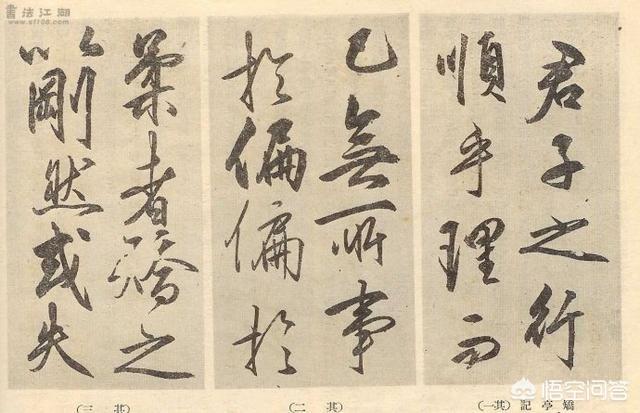 書法江湖
www.sf108.com
君子之行
順乎理而
已無所事
於偏偏於
柔者矯之
以剛然或失
矯亭記（其一）
（其二）
（其三）
悟空问答